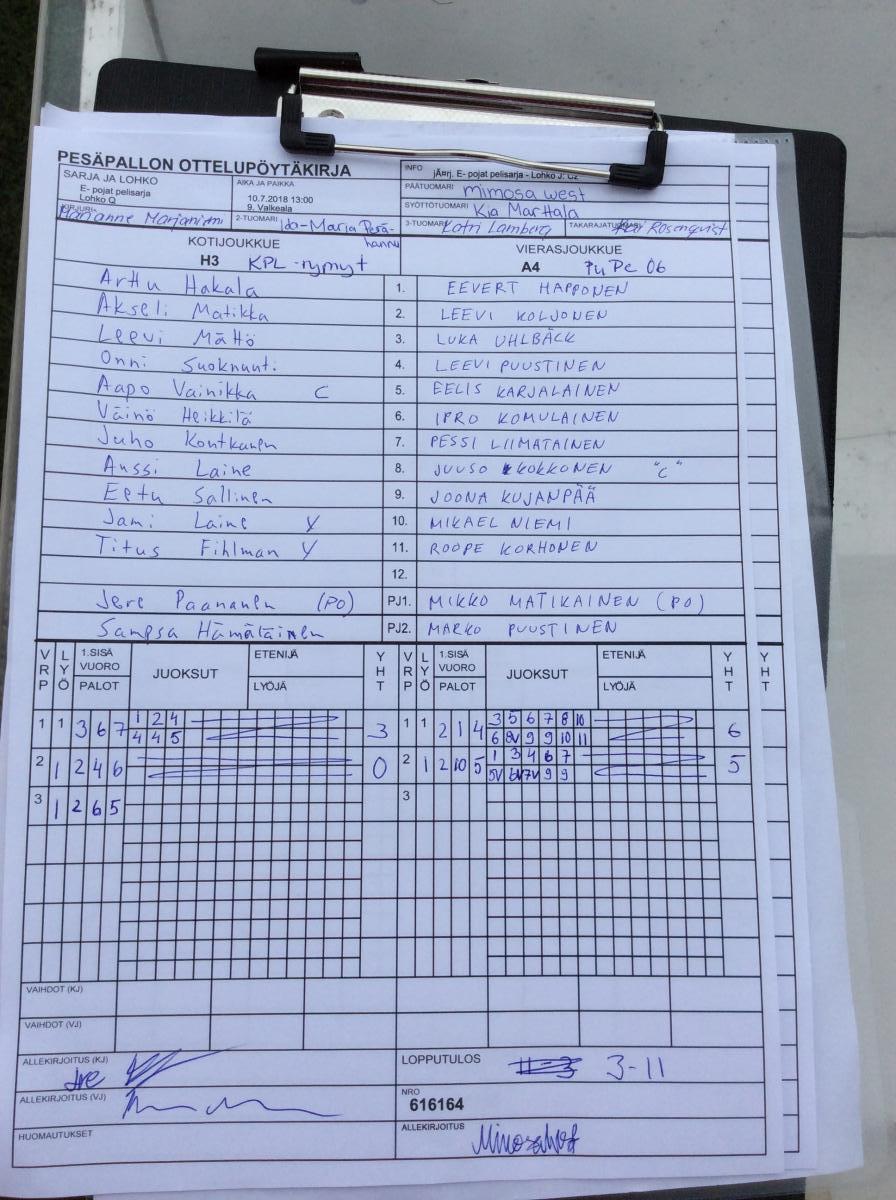 PESÄPALLON OTTELUPÖYTÄKIRJA
SARJA JA LOHKO
E- pojat pelisarja
Lohko Q
AIKA JA PAIKKA
10.7.2018 13:00
9. Valkeala
INFO
E- pojat pelisarja - Lohko J:
PÄÄTUOMARI mimosa west
SYÖTTÖTUOMARI Kia Marttala
Marianne Marjaniemi
2-TUOMARI Ida-Maria Perähannu
3-TUOMARI Katri Lamberg
Rosenqvist
KOTIJOUKKUE
H3 KPL-rymyt
VIERASJOUKKUE
A4 PuPe 06
Arttu Hakala 1. EEVERT HAPPONEN
Akseli Matikka 2. LEEVI KOLJONEN
Leevi Mättö 3. LUKA UHLBÄCK
Onni Suoknuuti 4. LEEVI PUUSTINEN
Aapo Vainikka C 5. EELIS KARJALAINEN
Väinö Heikkilä 6. IPRO KOMULAINEN
Juho Kontkanen 7. PESSI LIIMATAINEN
Anssi Laine 8. JUUSO KOKKONEN "C"
Eetu Sallinen 9. JOONA KUJANPÄÄ
Jami Laine Y 10. MIKAEL NIEMI
Titus Fihlman Y 11. ROOPE KORHONEN
12.
Jere Paananen (PO) PJ1. MIKKO MATIKAINEN (PO)
Sampsa Hämäläinen PJ2. MARKO PUUSTINEN
VRP LYÖ 1.SISÄ VUORO PALOT JUOKSUT ETENIJÄ LYÖJÄ YHT VRP LYÖ 1.SISÄ VUORO PALOT JUOKSUT ETENIJÄ LYÖJÄ YHT YHT
1 1 3 6 7 1 2 4 3 1 1 2 1 4 3 5 6 7 8 10 6
4 4 5 6 8V 9 9 10 11
2 1 2 4 6 0 2 1 2 10 5 1 3 4 6 7 5
5V 6V 7V 9 9
3 1 2 6 5 3
VAIHDOT (KJ)
VAIHDOT (VJ)
ALLEKIRJOITUS (KJ) Jre
LOPPUTULOS 3-11
ALLEKIRJOITUS (VJ)
NRO
616164
HUOMAUTUKSET
ALLEKIRJOITUS